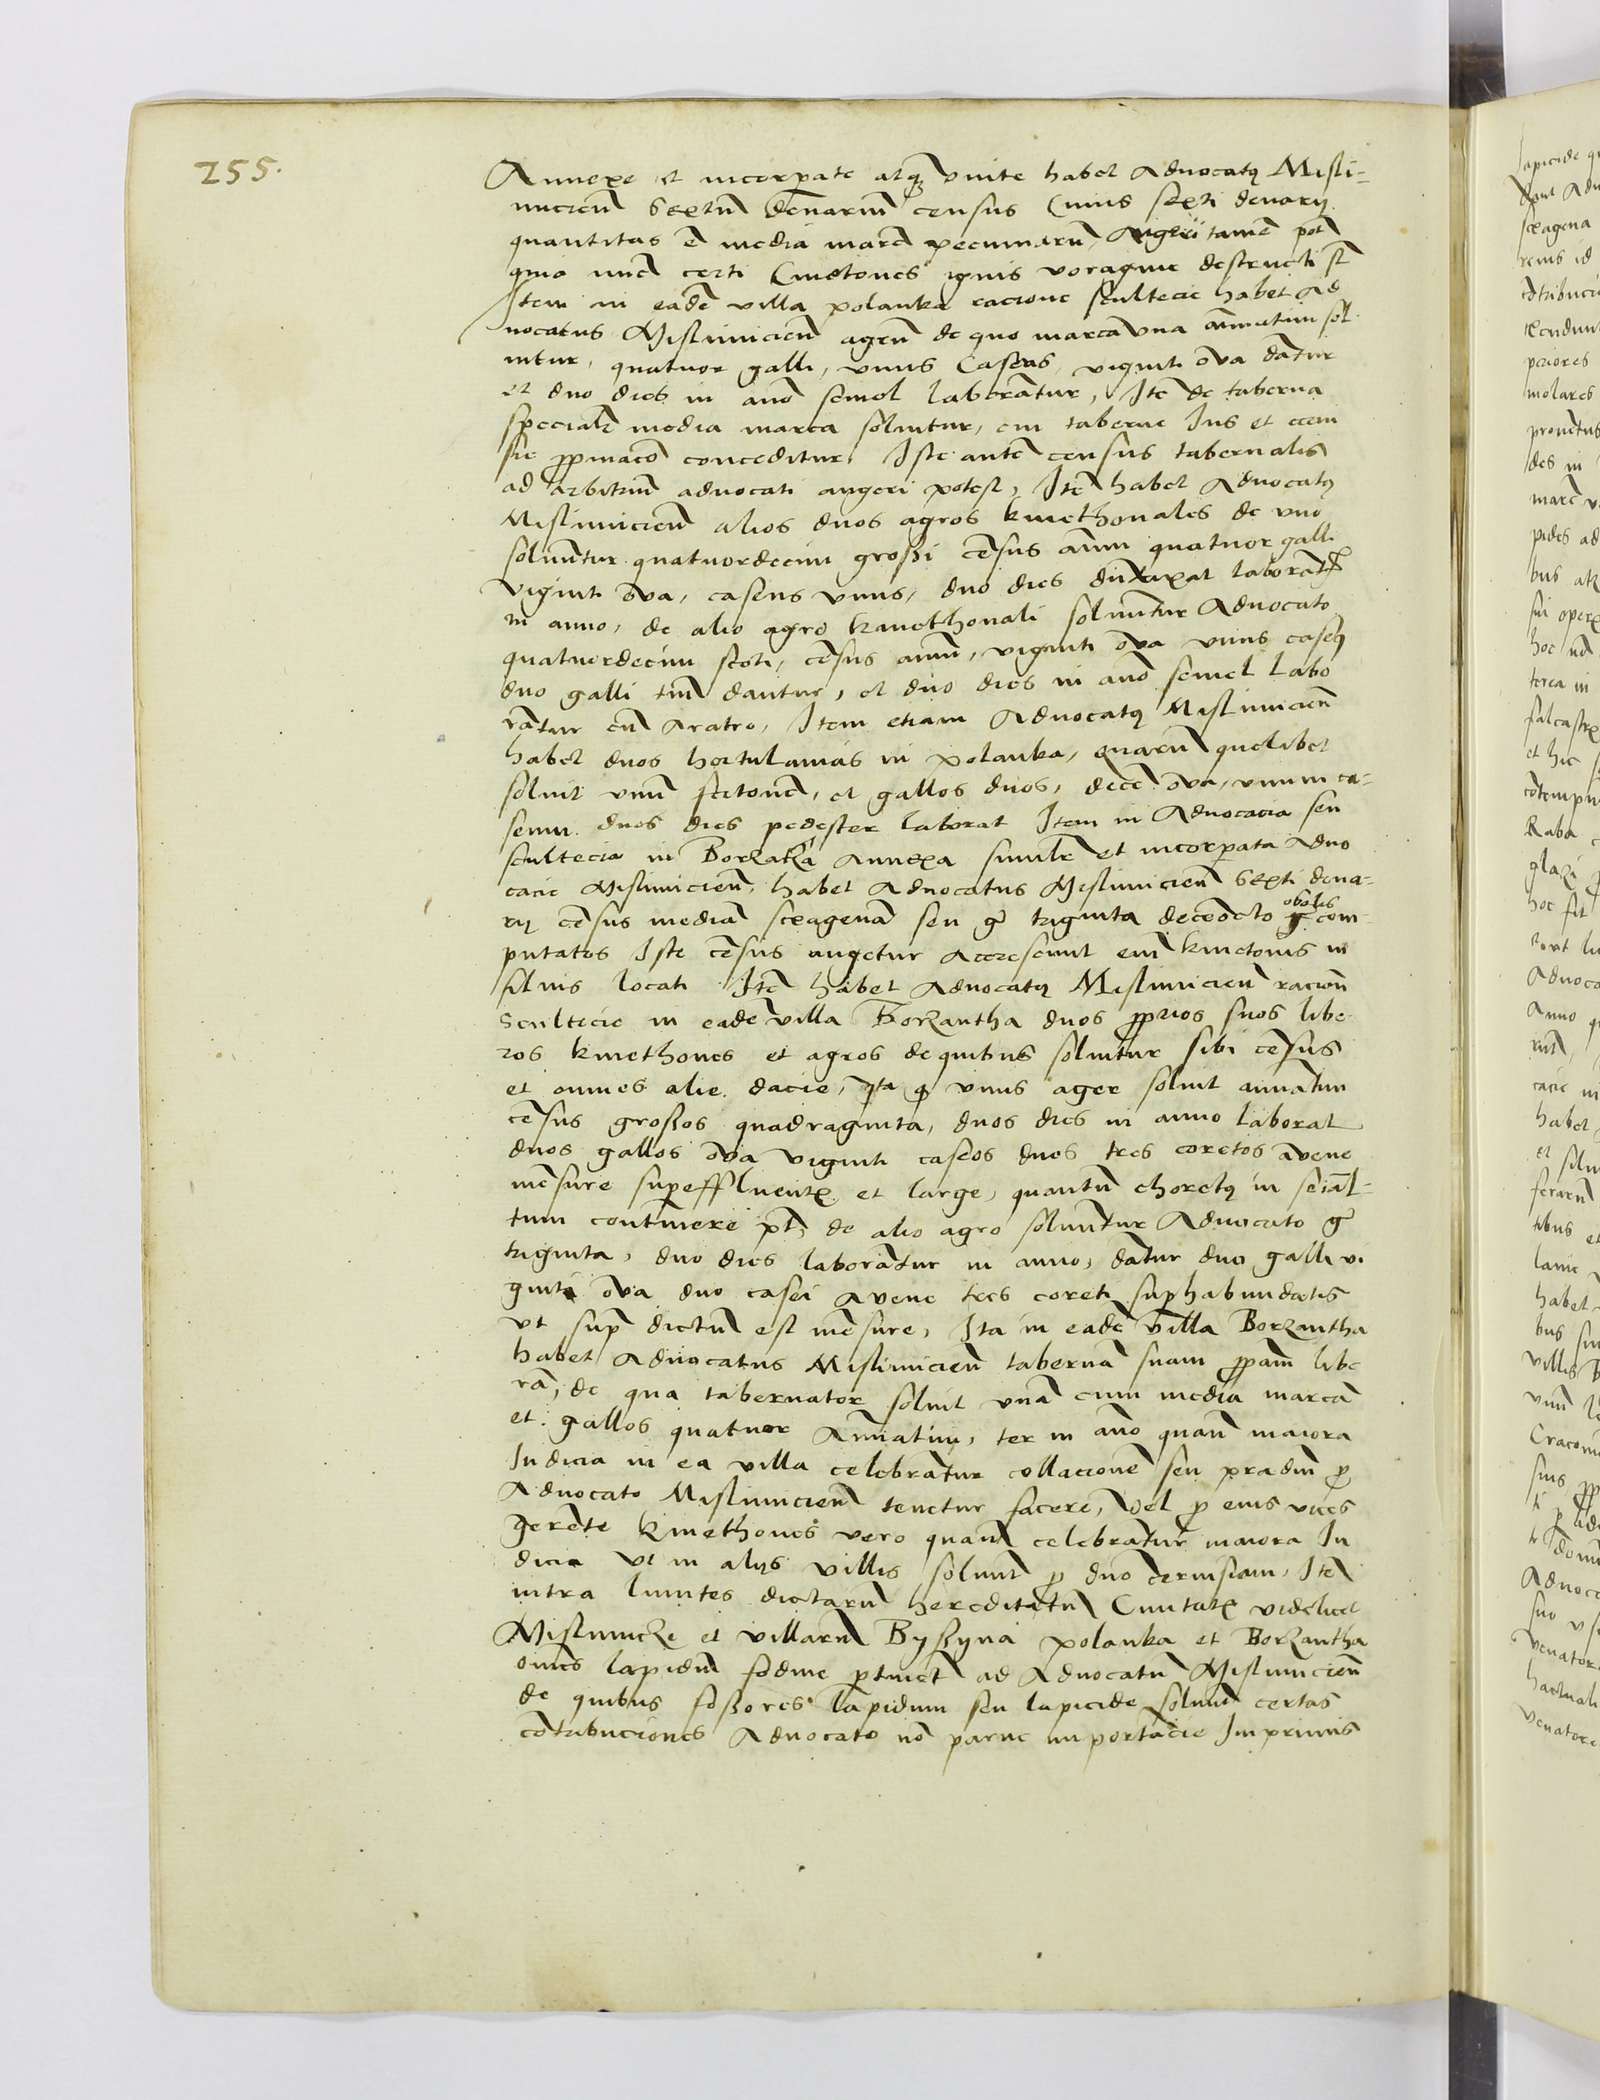 255.
Annexe et incorporate atq3 vnite habet Aduocatus Misli-
nicien Sextum denarium census Cuius sexti denarij
quantitas e media marc pecuniaru, Augeri tame pot
quia nuc certi Cmetones ignis voragine destructi st
Item in eade villa polanka racione scultecie habet Ad
uocatus Mislimicien agru de quo marca vna annuatim sol
uitur, quatuor galli, vnus Caseus, viginti oua datur
et duo dies in ano semel laboratur, Ite de taberna
speciali media marca soluitur, cui taberne Ius et
sic conceditur, Iste aute census tabernalis
ad arbitrium aduocati augeri potest, Ite habet Aduocatus
Mislimicien alios duos agros kmethonales de vno
soluuntur quatuordecim grossi cesus annui quatuor galli
viginti oua, caseus vnus, duo dies duntaxat laborat
in anno, de alio agro kmethonali soluuntur Aduocato
quatuordecim scoti, cesus annui, viginti oua vnus caseus
duo galli tm dantur, et duo dies in ano semel labo
ratur cu aratro, Item etiam Aduocatus Mislimicien
habet duos hortulanias in polanka, quaru quelibet
soluit vnu scotone, et gallos duos, dece oua, vnum ca-
seum duos dies pedester laborat Item in Aduocacia seu
scultecia in Borzatha Annexa simili et incorporata Aduo
cacie Mislimicien, habet Aduocatus Mislimicien Sexti dena-
rij cesus media sexagena seu gr triginta deceocto obolis com-
putatos Iste cesus augetur Accrescunt eni kmetonis in
siluis locati Ite habet Aduocatus Mislimicien racion
Scultecie in eade villa Borzantha duos pprios suos libe-
ros kmethones et agros de quibus soluitur sibi cesus
et omnes alie dacie, ita q vnus ager soluit annatim
cesus grossos quadraginta, duos dies in anno laborat
duos gallos oua viginti caseos duos tres coretos auene
mesure supeffluentis et large, quantu choretus in se
tum continere pt, de alio agro soluuntur Aduocato gr
triginta, duo dies laboratur in anno, datur duo galli vi
ginti oua duo casei auene tres coreti suphabundatis
vt supra dictu est mesure, Ita in eade villa Borzantha
habet Aduocatus Mislimicien taberna suam ppam libe
ra, de qua tabernator soluit vna cum media marca
et gallos quatuor Annatim, ter in ano quan maiora
Iudicia in ea villa celebratur collacione seu pradiu p
Aduocato Mislimicien tenetur facere, vel p eius vices
gerete kmethones vero quan celebratur maiora Iu
dicia vt in alijs villis soluunt p duo ceruisiam, Ite
intra limites dictaru hereditatu Ciuitatis videlicet
Mislimicze et villaru Byssyna polanka et Borzantha
omes lapidu fodine ptinet ad Aduocatu Mislimicien
de quibus fossores lapidum seu lapicide soluut certas
cotribuciones Aduocato no parue importacie Imprimis